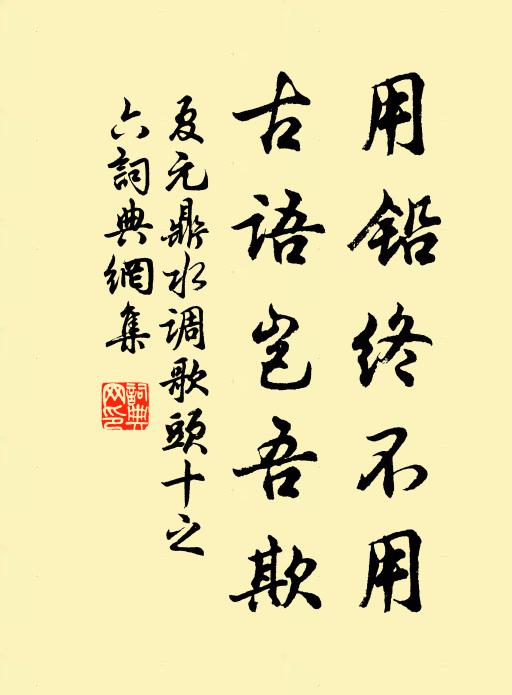 用铅终不用
古语岂吾欺
夏元鼎水调歌頭十之
六詞典網集
詞典
网印